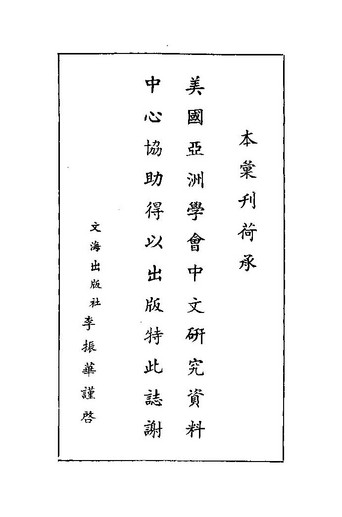 本彙刊荷承
美國亞洲學會中文研究資料
中心協助得以出版特此誌謝
文海出版社 李振華謹啓